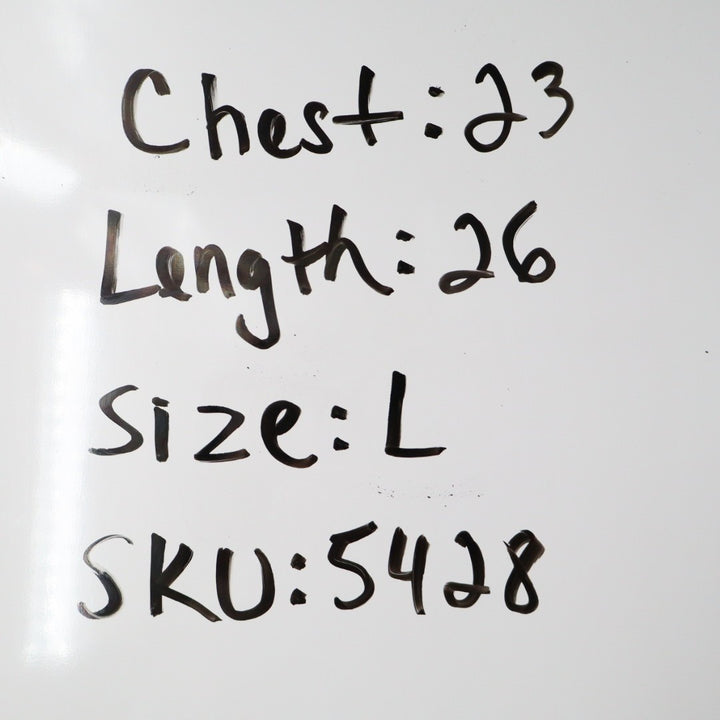 Chest: 23
Length: 26
Size: L
SKU: 5428